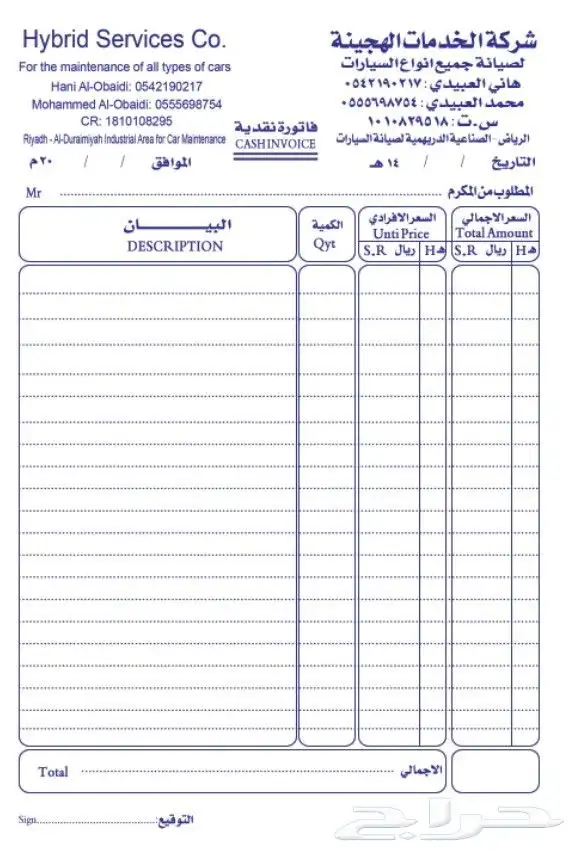 Hybrid Services Co.
For the maintenance of all types of cars
Hani Al-Obaidi: 0542190217
Mohammed Al-Obaidi: 0555698754
CR: 1810108295
Riyadh - Al-Duraimiyah Industrial Area for Car Maintenance
شركة الخدمات الهجينة
لصيانة جميع انواع السيارات
هاني العبيدي: ٠٥٤٢١٩٠٢١٧
محمد العبيدي: ٠٥٥٥٦٩٨٧٥٤
س.ت: ١٠١٠٨٢٩٥١٨
الرياض - الصناعية الدريهمية لصيانة السيارات
فاتورة نقدية
CASH INVOICE
التاريخ / / ١٤ هـ
الموافق / / ٢٠ م
Mr المطلوب من المكرم
البيـــــــان الكمية السعر الافرادي السعر الاجمالي
DESCRIPTION Qyt Unti Price Total Amount
S.R ريال H هـ S.R ريال H هـ
Total الاجمالي
Sign التوقيع:
حراج